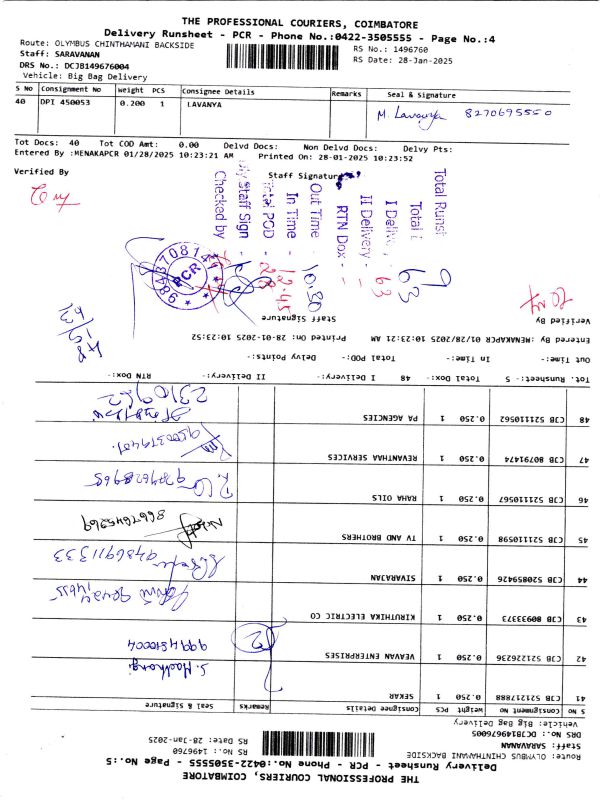 THE PROFESSIONAL COURIERS, COIMBATORE
Delivery Runsheet - PCR - Phone No.:0422-3505555 - Page No.:4
Route: OLYMBUS CHINTHAMANI BACKSIDE
Staff: SARAVANAN
DRS No.: DCJB149676004
Vehicle: Big Bag Delivery
RS No.: 1496760
RS Date: 28-Jan-2025
S No Consignment No Weight PCS Consignee Details Remarks Seal & Signature
40 DPI 450053 0.200 1 LAVANYA M. Lavanya 8270695550
Tot Docs: 40 Tot COD Amt: 0.00 Delvd Docs: Non Delvd Docs: Delvy Pts:
Entered By :MENAKAPCR 01/28/2025 10:23:21 AM Printed On: 28-01-2025 10:23:52
Verified By Staff Signature
Total Runsh 9
Total D 63
I Delive 63
II Delivery -
RTN Dox -
Out Time - 10.30
In Time - 12.45
Total POD - 28
Dly Staff Sign -
Checked by
9843708144
PCR
THE PROFESSIONAL COURIERS, COIMBATORE
Delivery Runsheet - PCR - Phone No.:0422-3505555 - Page No.:5
Route: OLYMBUS CHINTHAMANI BACKSIDE
Staff: SARAVANAN
DRS No.: DCJB149676005
Vehicle: Big Bag Delivery
RS No.: 1496760
RS Date: 28-Jan-2025
S No Consignment No Weight PCS Consignee Details Remarks Seal & Signature
41 CJB 521217888 0.250 1 SEKAR
42 CJB 521226236 0.250 1 VEAVAN ENTERPRISES
43 CJB 80933373 0.250 1 KIRUTHIKA ELECTRIC CO
44 CJB 520859426 0.250 1 SIVARAJAN 9486911333
45 CJB 521110598 0.250 1 TV AND BROTHERS 8667645369
46 CJB 521110567 0.250 1 RAHA OILS
47 CJB 80791474 0.250 1 REVANTHAA SERVICES
48 CJB 521110562 0.250 1 PA AGENCIES
Tot. Runsheet:- 5 Total Dox:- 48 I Delivery:- II Delivery:- RTN Dox:-
Out Time:- In Time:- Total POD:- Delvy Points:-
Entered By :MENAKAPCR 01/28/2025 10:23:21 AM Printed On: 28-01-2025 10:23:52
Verified By Staff Signature